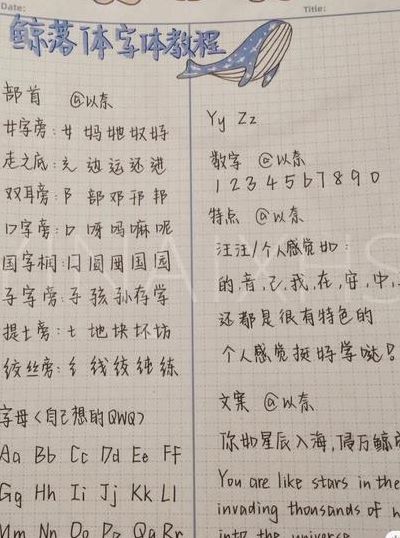 Date:
Title:
鲸落体字体教程
部首 @以奈
廿字旁: 廿 妈她奴好
走之底: 辶 边运还进
双耳旁: 阝 部邓邘邦
口字旁: 口 呀吗嘛呢
国字桐: 囗 圆国园
子字旁: 子 孩孙存学
提土旁: 土 地块坏坊
绞丝旁: 纟 线绞纯练
字母〈自己想的QWQ〉
Aa Bb Cc Dd Ee Ff
Gg Hh Ii Jj Kk Ll
Mm Nn Oo Pp Qq Rr
Yy Zz
数字 @以奈
1 2 3 4 5 6 7 8 9 0
特点 @以奈
汪汪/个人感觉如:
的,音,己,我,在,守,中,
还都是很有特色的
个人感觉挺好学哒?
文案 @以奈
你如星辰入海,侵万鲸
You are like stars in the
invading thousands of
into the universe